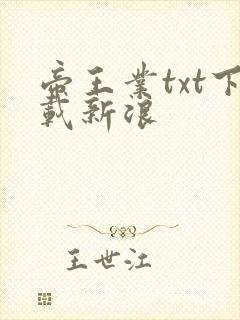 帝王业txt下
载新浪
王世江